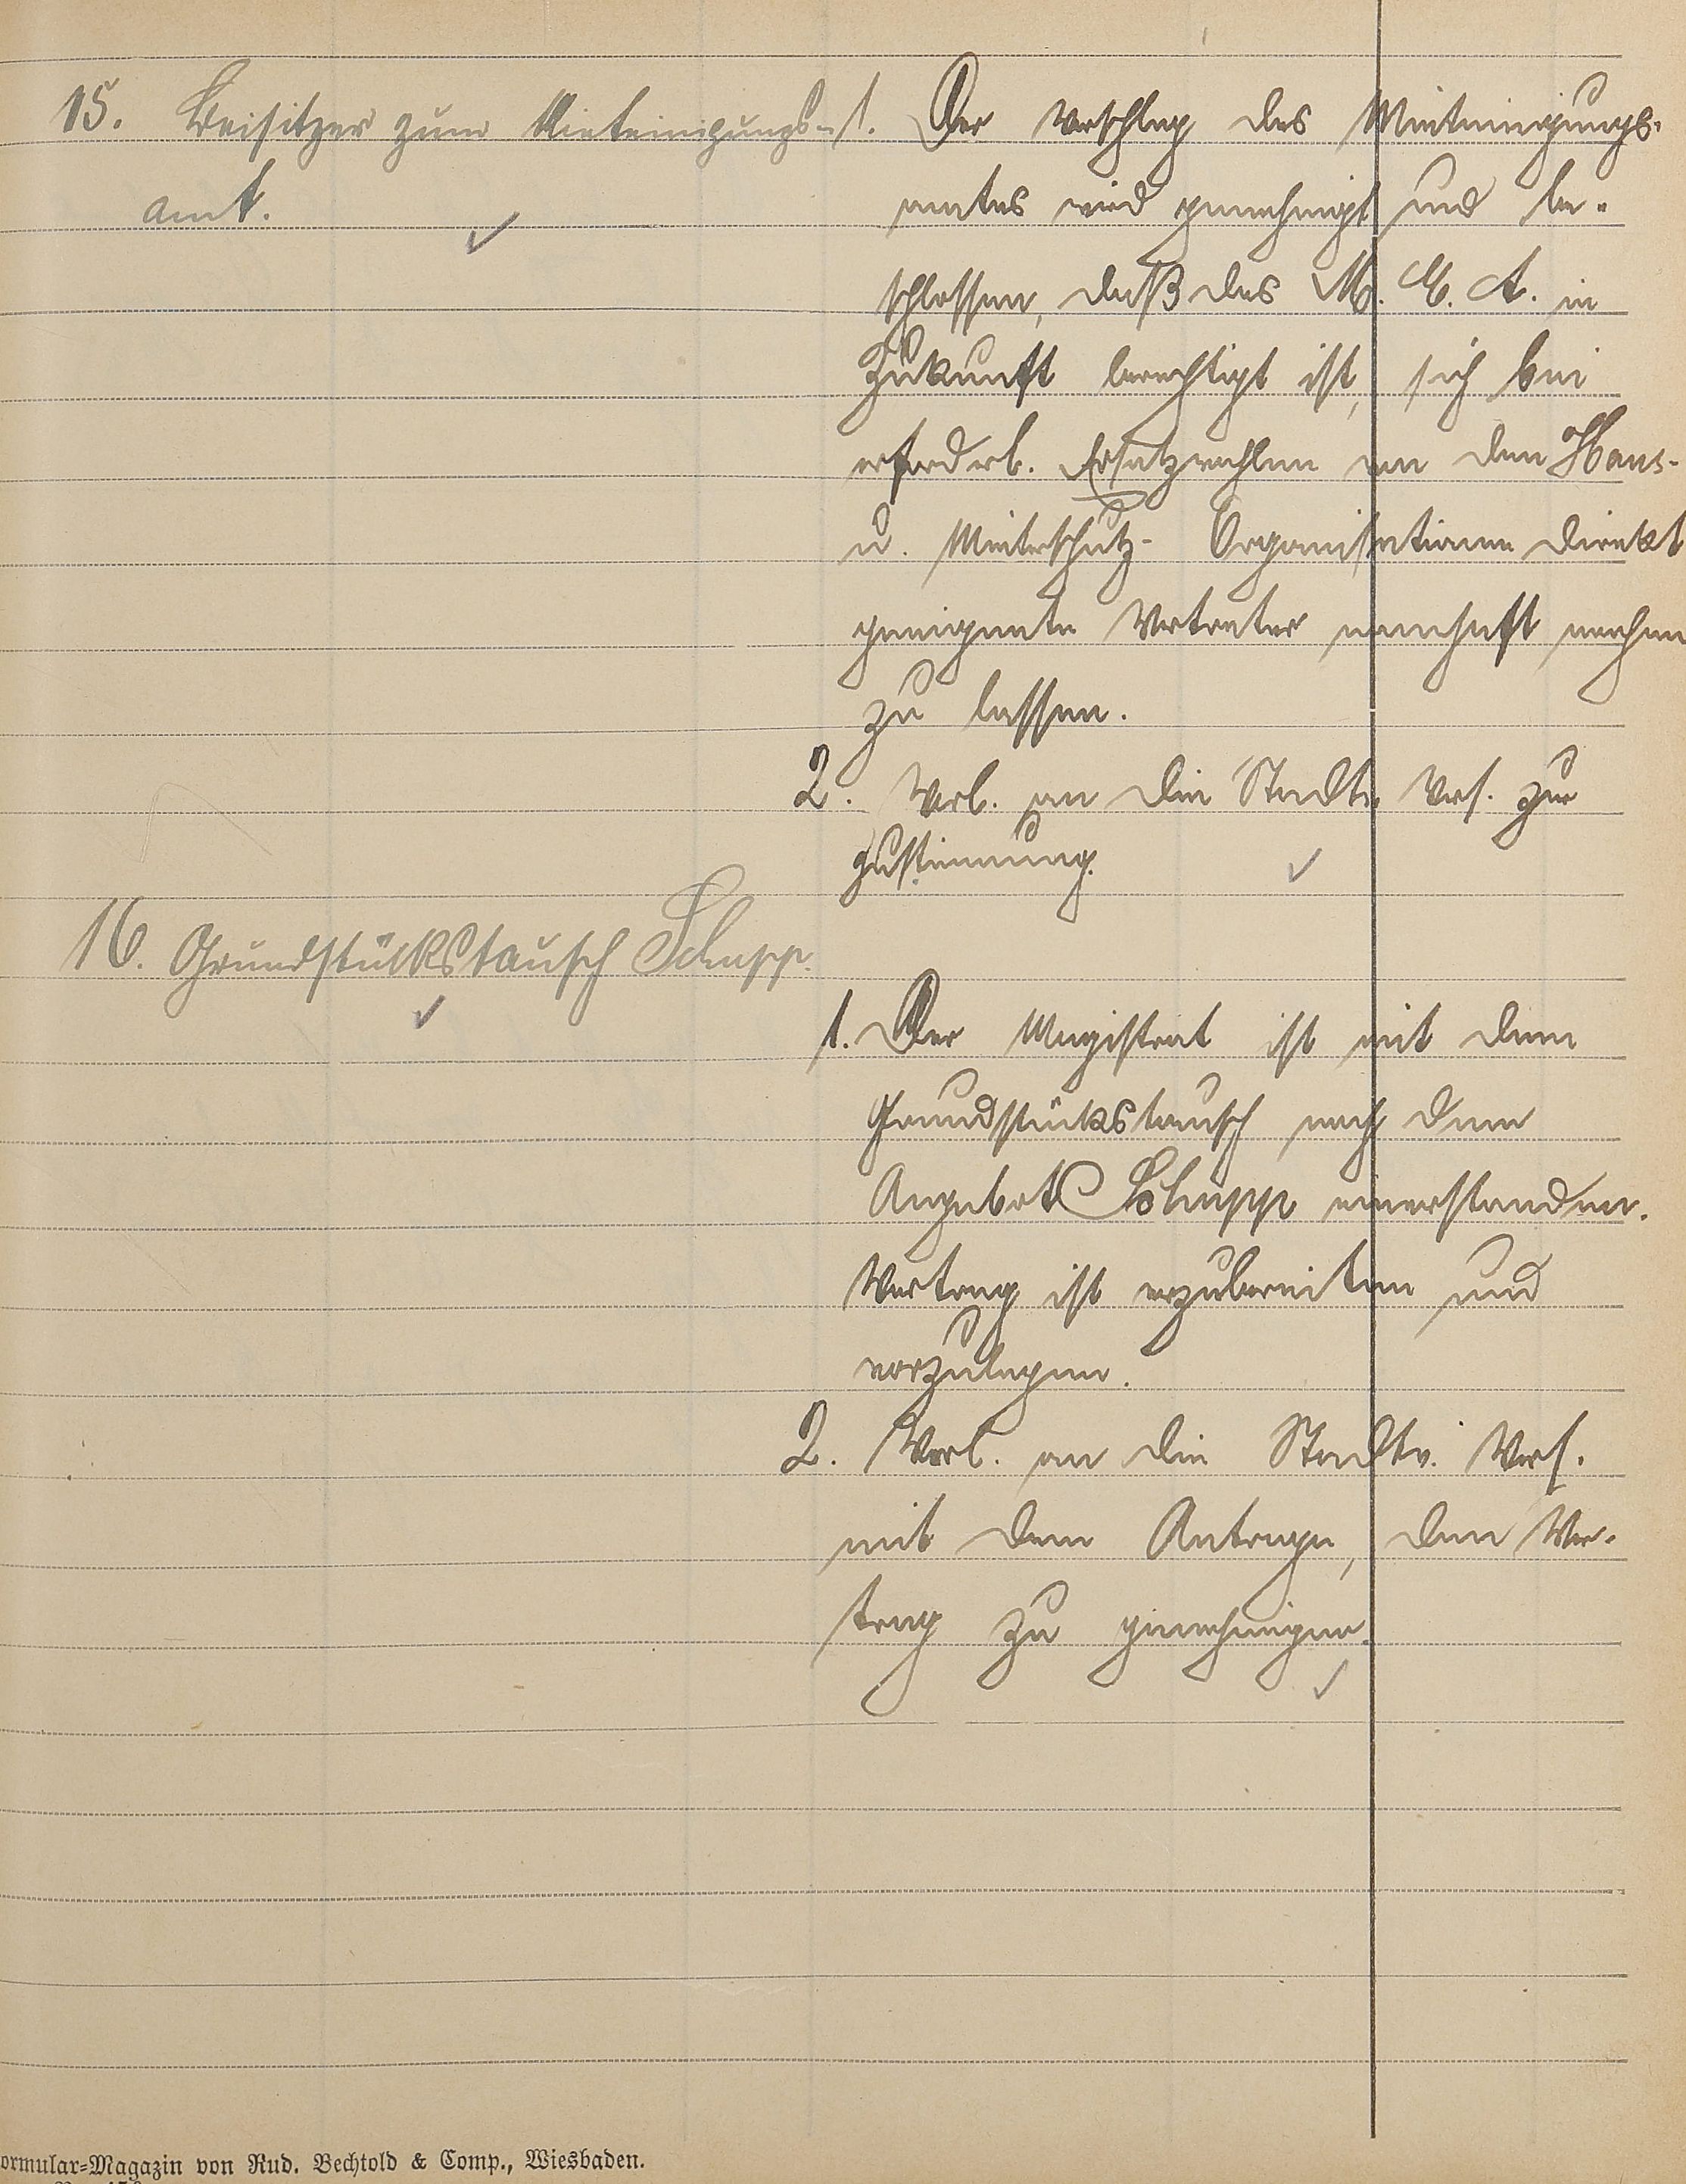 15. Beisitzer zum Mieteinigungs-
amt.
1. Der Vorschlag des Mieteinigungs-
amtes wird genehmigt und be-
schlossen, daß das M. E. A. in
Zukunft berechtigt ist, sich bei
erforderl. Ersatzwahlen von den Haus-
u. Mieterschutz- Organisationen direkt
geeignete Vertreter namhaft machen
zu lassen.
2. Vorl. an die Stadtv. Vers. zur
Zustimmung.
16. Grundstückstausch Schupp.
1. Der Magistrat ist mit dem
Grundstückstausch nach dem
Angebot Schupp einverstanden.
Vertrag ist vorzubereiten und
vorzulegen.
2. Vorl. an die Stadtv. Vers.
mit dem Antrage, den Ver-
trag zu genehmigen.
ormular-Magazin von Rud. Bechtold & Comp., Wiesbaden.